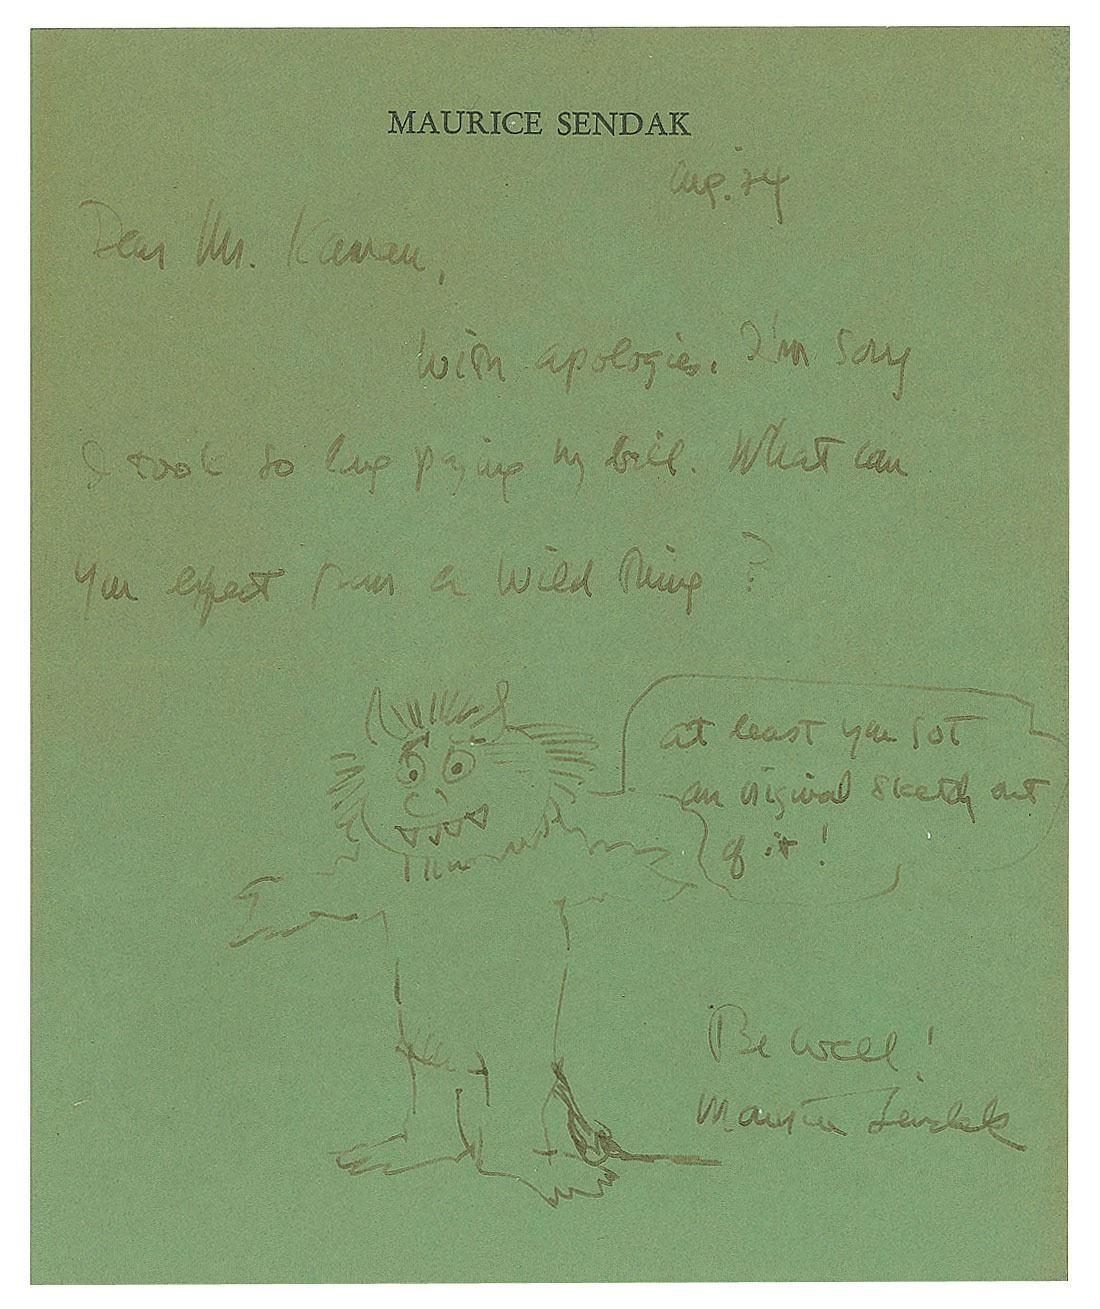 MAURICE SENDAK
Aug. 24
Dear Mr.
With apologies. I'm sorry
I took so long paying my bill. What can
you expect from a Wild Thing?
at least you got
an original sketch out
of it!
Be well!
Maurice Sendak